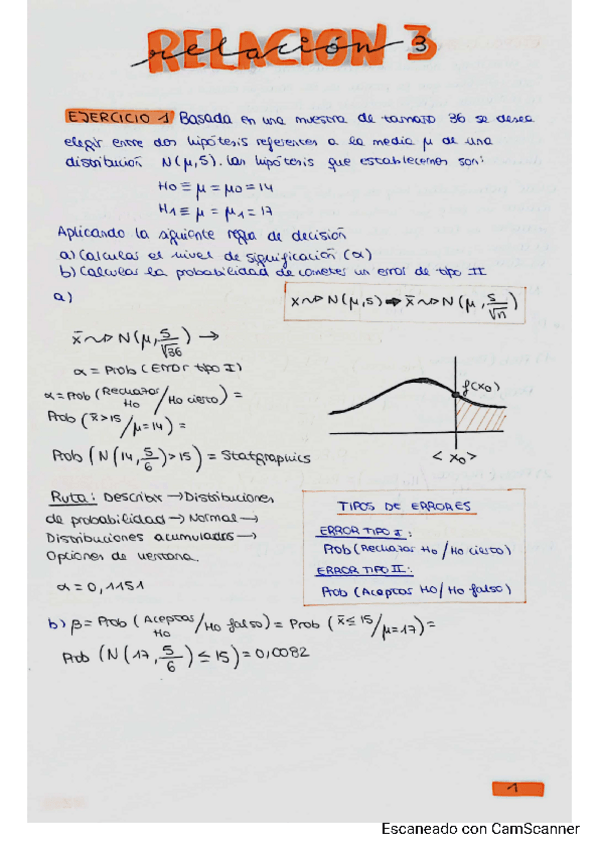 RELACIÓN 3
relación
EJERCICIO 1 Basada en una muestra de tamaño 36 se desea
elegir entre dos hipótesis referentes a la media μ de una
distribución N(μ,5). Las hipótesis que establecemos son:
H0 ≡ μ = μ0 = 14
H1 ≡ μ = μ1 = 17
Aplicando la siguiente regla de decisión
a) Calculas el nivel de significación (α)
b) Calculas la probabilidad de cometer un error de tipo II
a)
x ~> N(μ,5) ➡ x̄ ~> N(μ, 5/√n)
x̄ ~> N(μ, 5/√36) →
α = Prob (Error tipo I)
α = Prob (Rechazar H0 / H0 cierto) =
Prob (x̄ > 15 / μ = 14) =
Prob (N(14, 5/6) > 15) = Statgraphics
f(x0)
< x0 >
Ruta: Describir → Distribuciones
de probabilidad → Normal →
Distribuciones acumuladas →
Opciones de ventana.
α = 0,1151
TIPOS DE ERRORES
ERROR TIPO I:
Prob (Rechazar H0 / H0 cierto)
ERROR TIPO II:
Prob (Aceptas H0 / H0 falso)
b) β = Prob (Aceptas H0 / H0 falso) = Prob (x̄ ≤ 15 / μ = 17) =
Prob (N(17, 5/6) ≤ 15) = 0,0082
1
Escaneado con CamScanner